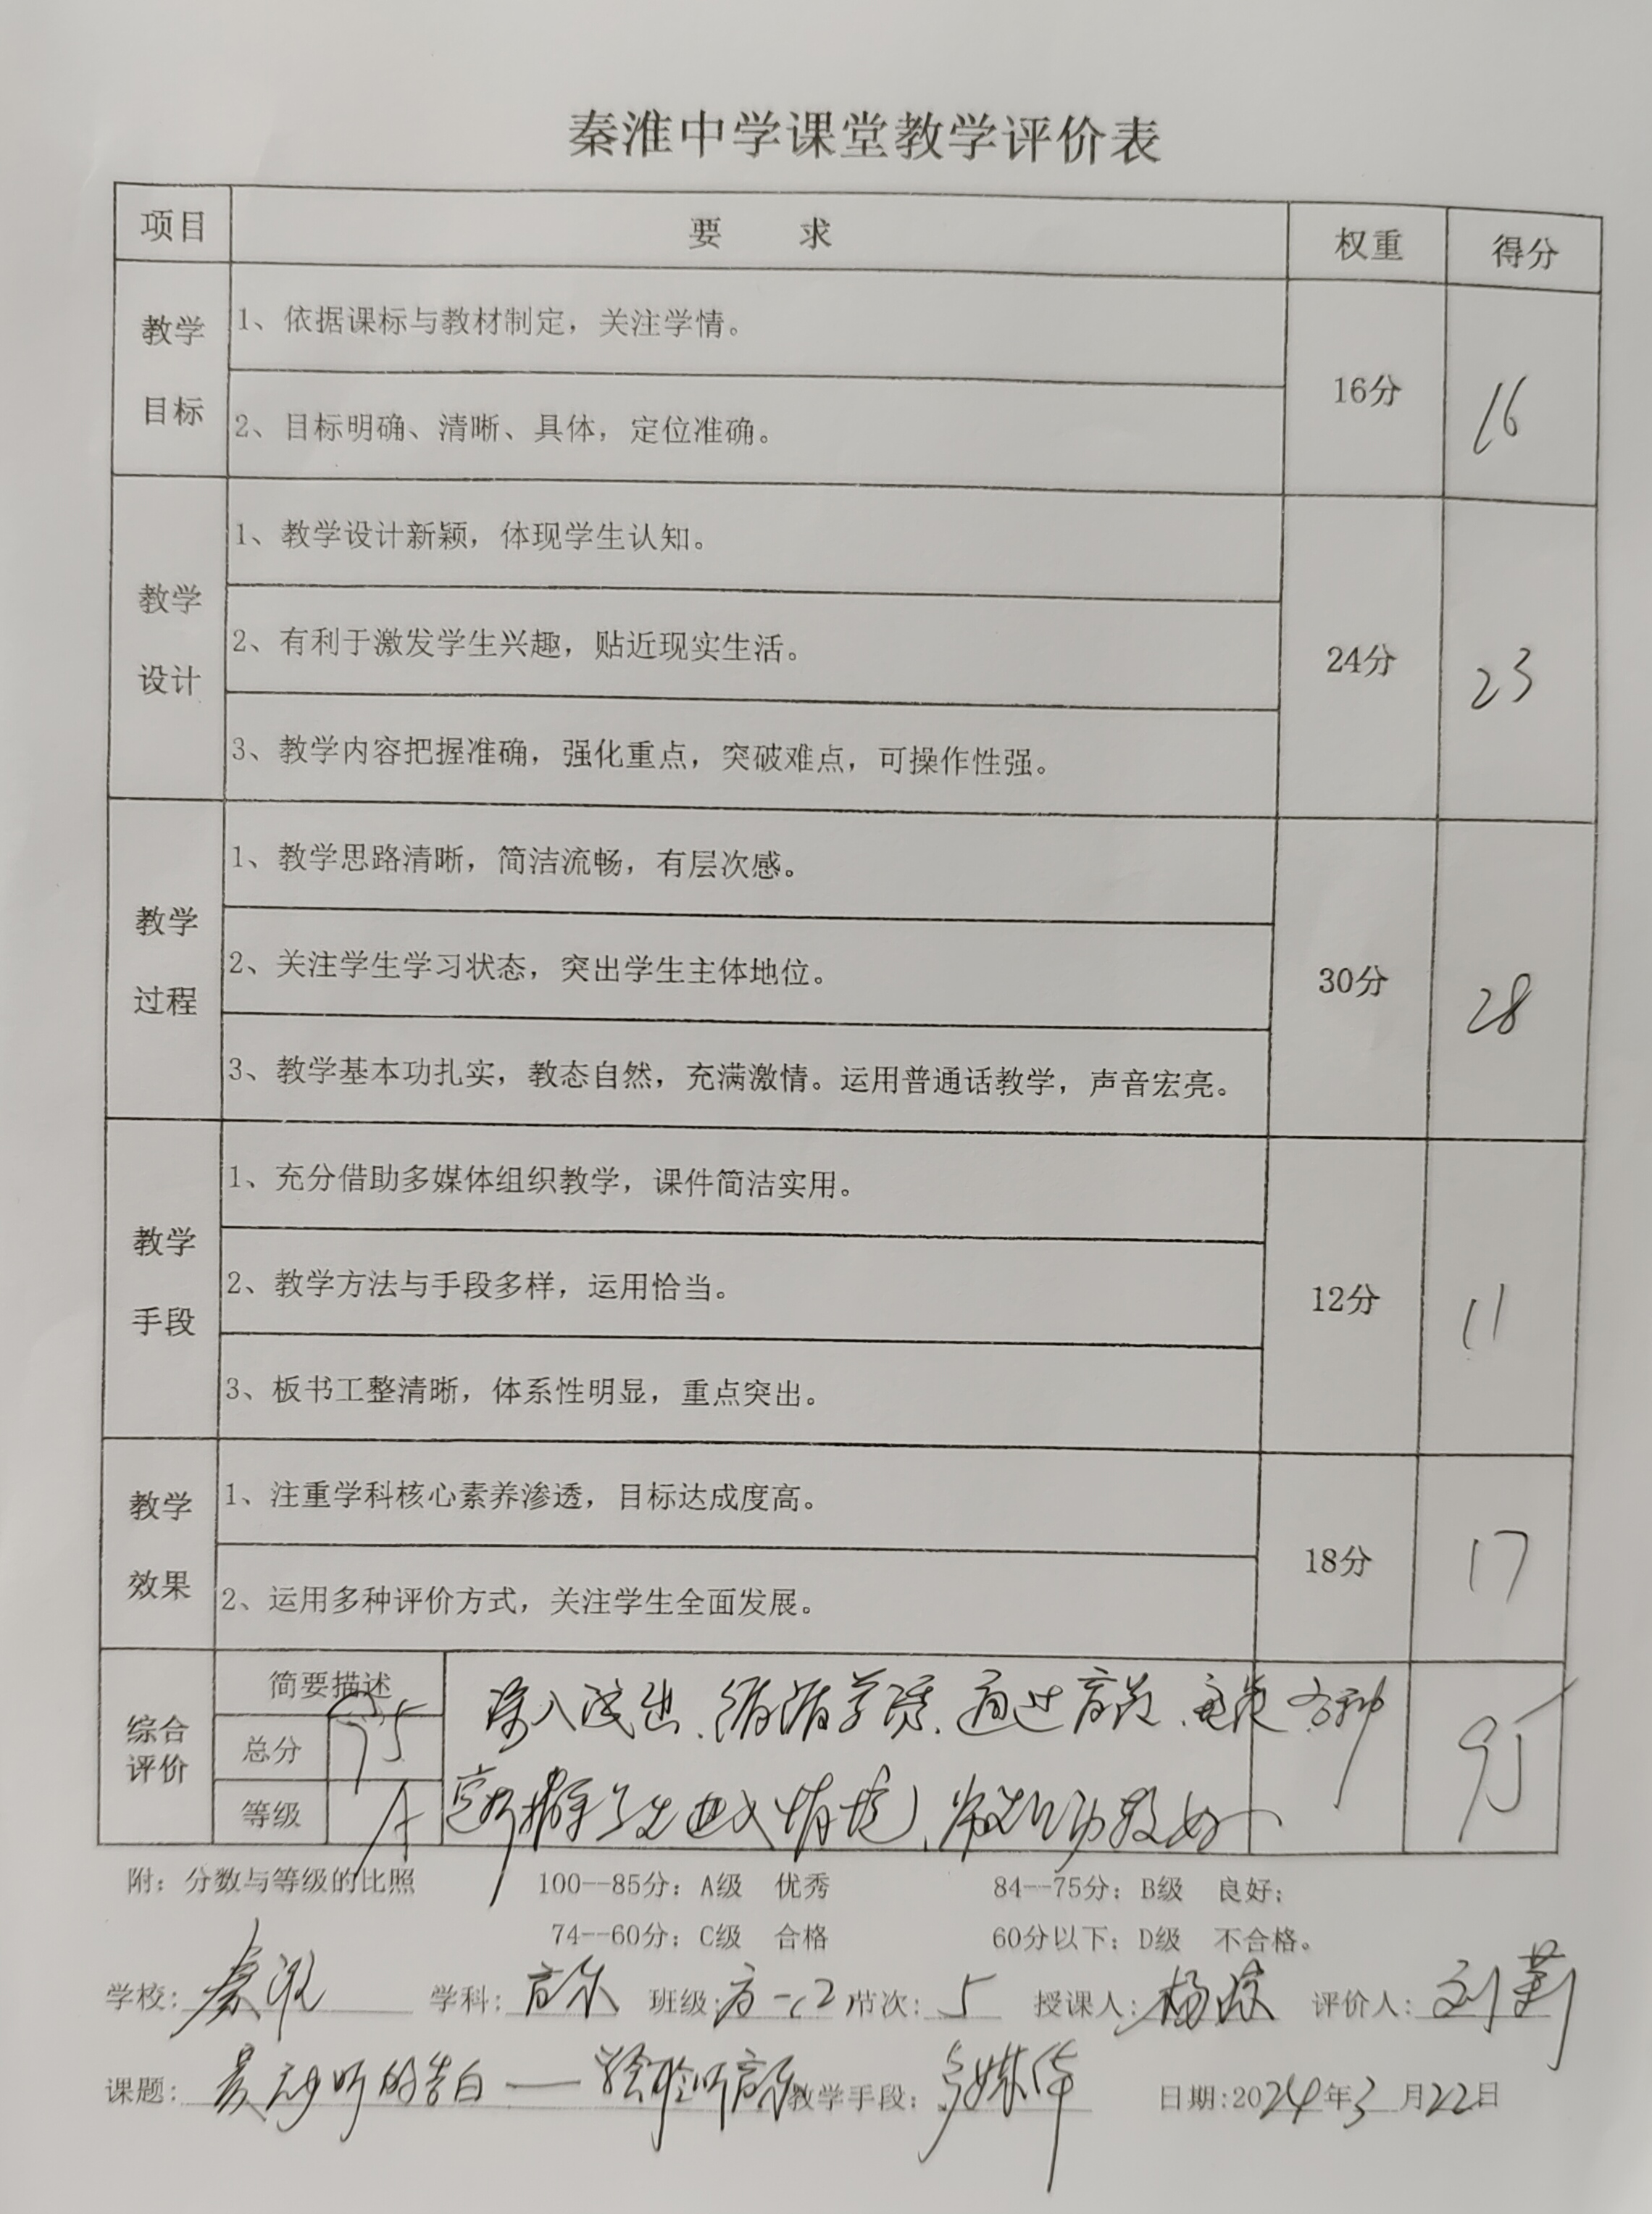 秦淮中学课堂教学评价表
项目 要 求 权重 得分
教学目标 1、依据课标与教材制定，关注学情。 16分 16
2、目标明确、清晰、具体，定位准确。
教学设计 1、教学设计新颖，体现学生认知。 24分 23
2、有利于激发学生兴趣，贴近现实生活。
3、教学内容把握准确，强化重点，突破难点，可操作性强。
教学过程 1、教学思路清晰，简洁流畅，有层次感。 30分 28
2、关注学生学习状态，突出学生主体地位。
3、教学基本功扎实，教态自然，充满激情。运用普通话教学，声音宏亮。
教学手段 1、充分借助多媒体组织教学，课件简洁实用。 12分 11
2、教学方法与手段多样，运用恰当。
3、板书工整清晰，体系性明显，重点突出。
教学效果 1、注重学科核心素养渗透，目标达成度高。 18分 17
2、运用多种评价方式，关注学生全面发展。
综合评价 简要描述 深入浅出、循循善诱、通过音视 各种 95
总分 95
等级 A 学生进入情境、 较好
附：分数与等级的比照 100--85分：A级 优秀 84--75分：B级 良好；
74--60分：C级 合格 60分以下：D级 不合格。
学校：秦淮 学科：音乐 班级：高一(2) 节次：5 授课人：杨 评价人：刘莉
课题：最动听的告白——学会聆听音乐 教学手段：多媒体 日期:2024年3月22日